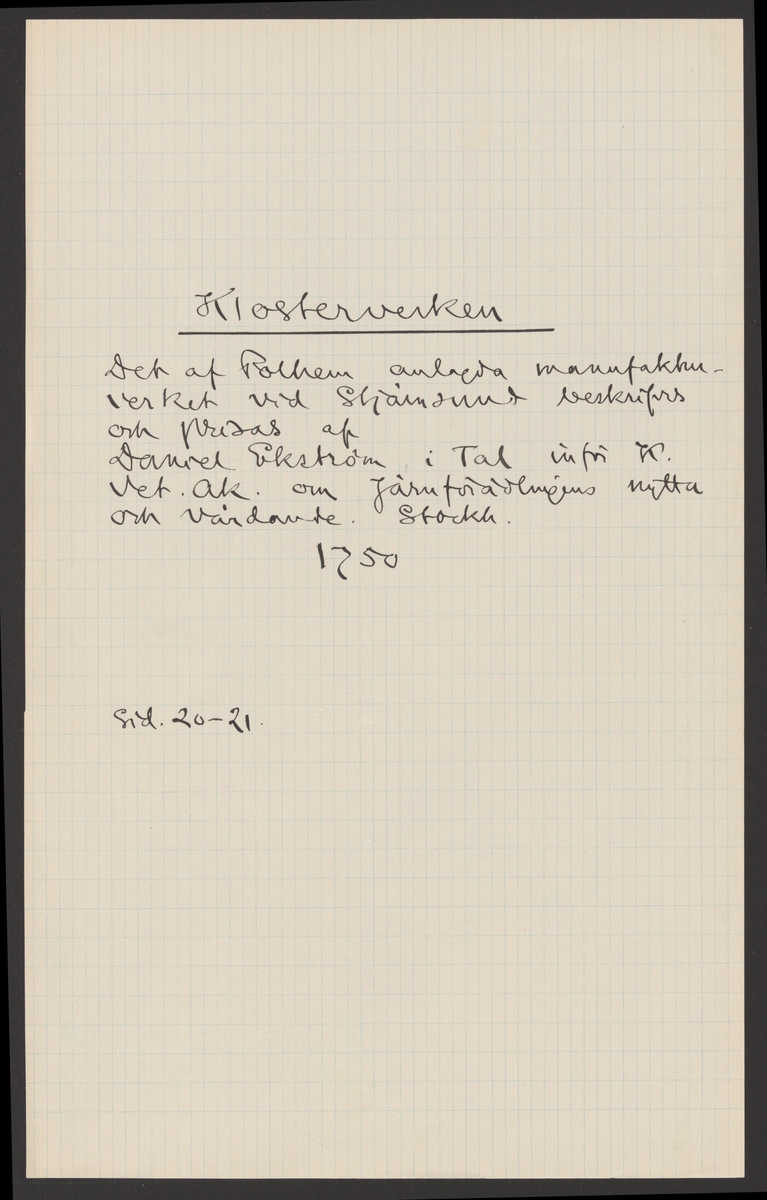 Klosterverken
Det af Polhem anlagda manufaktu-
verket vid Stjärnsund beskrifvs
och prisas af
Daniel Ekström i Tal inför K.
Vet. Ak. om Järnförädlingens nytta
och vårdande. Stockh.
1750
Sid. 20-21.